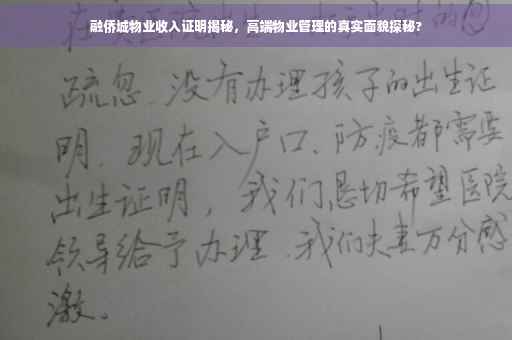 融侨城物业收入证明揭秘，高端物业管理的真实面貌探秘？
疏忽、没有办理孩子的出生证
明、现在入户口、防疫都需要
出生证明，我们恳切希望医院
领导给予办理、我们夫妻万分感
激。